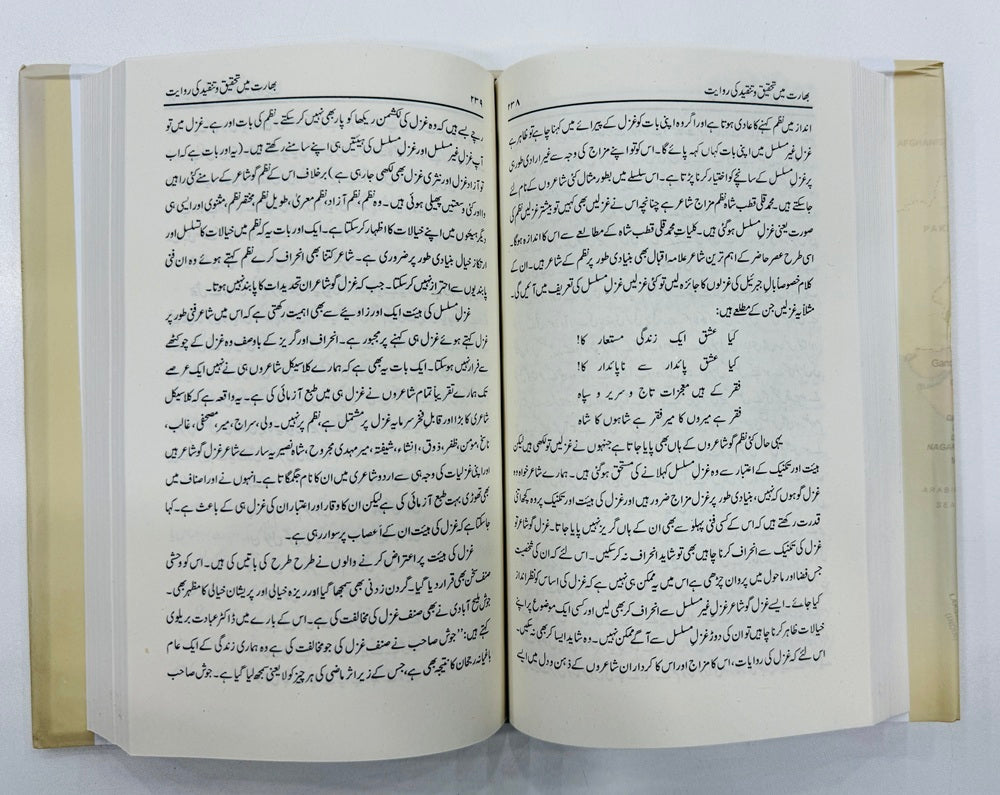 بھارت میں تحقیق و تنقید کی روایت
۲۳۸
انداز میں نظم کہنے کا عادی ہوتا ہے اور اگر وہ اپنی بات کو غزل کے پیرائے میں کہنا چاہے تو ظاہر ہے
غزلِ غیر مسلسل میں اپنی بات کہاں کہہ پائے گا۔ اس کو تو اپنے مزاج کی وجہ سے غیر ارادی طور ہی
پر غزلِ مسلسل کے سانچے کو اختیار کرنا پڑتا ہے۔ اس سلسلے میں بطور مثال کئی شاعروں کے نام لئے
جاسکتے ہیں۔ محمد قلی قطب شاہ نظم مزاج شاعر ہے چنانچہ اس نے غزلیں بھی کہیں تو بیشتر غزلیں نظم کی
صورت یعنی غزلِ مسلسل ہوگئی ہیں۔ کلیات محمد قلی قطب شاہ کے مطالعے سے اس کا اندازہ ہوگا۔
اسی طرح عصر حاضر کے اہم ترین شاعر علامہ اقبال بھی بنیادی طور پر نظم کے شاعر ہیں۔ ان کے
کلام خصوصاً بالِ جبرئیل کی غزلوں کا جائزہ لیں تو کئی غزلیں غزلِ مسلسل کی تعریف میں آئیں گی۔
مثلاً یہ غزلیں جن کے مطلعے ہیں:
کیا عشق ایک زندگی مستعار کا!
کیا عشق پائدار سے ناپائدار کا!
فقر کے ہیں معجزات تاج و سریر و سپاہ
فقر ہے میروں کا میر فقر ہے شاہوں کا شاہ
یہی حال کئی نظم گو شاعروں کے ہاں بھی پایا جاتا ہے جنہوں نے غزلیں تو لکھی ہیں لیکن
ہیئت اور تکنیک کے اعتبار سے وہ غزلِ مسلسل کہلانے کی مستحق ہوگئی ہیں۔ ہمارے شاعر خواہ وہ
غزل گو ہوں کہ نہیں، بنیادی طور پر غزل مزاج ضرور ہیں اور غزل کی ہیئت اور تکنیک پر وہ
قدرت رکھتے ہیں کہ اس کے کسی فنی پہلو سے بھی ان کے ہاں گریز نہیں پایا جاتا۔ غزل گو شاعر تو
غزل کی تکنیک سے انحراف کرنا چاہیں بھی تو شاید انحراف نہ کرسکیں۔ اس لئے کہ ان کی شخصیت
جس فضا اور ماحول میں پروان چڑھی ہے اس میں یہ ممکن ہی نہیں ہے کہ غزل کی اساس کو نظر انداز
کیا جائے۔ ایسے غزل گو شاعر غزلِ غیر مسلسل سے انحراف کر بھی لیں اور کسی ایک موضوع پر اپنے
خیالات ظاہر کرنا چاہیں تو ان کی دوڑ غزلِ مسلسل سے آگے ممکن نہیں۔ وہ شاید ایسا کر بھی نہ سکیں۔
اس لئے کہ غزل کی روایات، اس کا مزاج اور اس کا کردار ان شاعروں کے ذہن و دل میں ایسے
بھارت میں تحقیق و تنقید کی روایت
۲۳۹
رچے بسے ہیں کہ وہ غزل کی لکشمن ریکھا کو پار بھی نہیں کرسکتے۔ نظم کی بات اور ہے۔ غزل میں تو
آپ غزلِ غیر مسلسل اور غزلِ مسلسل کی ہیئتیں ہی اپنے سامنے رکھتے ہیں۔ (یہ اور بات ہے کہ اب
تو آزاد غزل اور نثری غزل بھی لکھی جارہی ہے) برخلاف اس کے نظم گو شاعر کے سامنے کئی راہیں
وا اور کئی وسعتیں پھیلی ہوئی ہیں۔ وہ نظم، نظم آزاد، نظم معریٰ، طویل نظم، مختصر نظم، مثنوی اور ایسی ہی
دیگر ہیئتوں میں اپنے خیالات کا اظہار کرسکتا ہے۔ ایک اور بات یہ کہ نظم میں خیالات کا تسلسل اور
ارتکاز خیال بنیادی طور پر ضروری ہے۔ شاعر کتنا بھی انحراف کرے نظم کہتے ہوئے وہ ان فنی
پابندیوں سے احتراز نہیں کرسکتا۔ جب کہ غزل گو شاعر ان تحدیدات کا پابند نہیں ہوتا۔
غزلِ مسلسل کی ہیئت ایک اور زاویئے سے بھی اہمیت رکھتی ہے کہ اس میں شاعر فنی طور پر
غزل کہتے ہوئے غزل ہی کہنے پر مجبور ہے۔ انحراف اور گریز کے باوصف وہ غزل کے چوکھٹے
سے فرار نہیں ہوسکتا۔ ایک بات یہ بھی ہے کہ ہمارے کلاسیکل شاعروں ہی نے نہیں ایک عرصے
تک ہمارے تقریباً تمام شاعروں نے غزل ہی میں طبع آزمائی کی ہے۔ یہ واقعہ ہے کہ کلاسیکل
شاعری کا بڑا اور قابل فخر سرمایہ غزل پر مشتمل ہے، نظم پر نہیں۔ ولی، سراج، میر، مصحفی، غالب،
ناسخ، مومن، ظفر، ذوق، انشاء، شیفتہ، میر مہدی مجروح، شاہ نصیر یہ سارے شاعر غزل گو شاعر ہیں
اور اپنی غزلیات کی وجہ ہی سے اردو شاعری میں ان کا نام جگمگاتا ہے۔ انہوں نے اور اصناف میں
بھی تھوڑی بہت طبع آزمائی کی ہے لیکن ان کا وقار اور اعتبار ان کی غزل ہی کے باعث ہے۔ کہا
جاسکتا ہے کہ غزل کی ہیئت ان کے اعصاب پر سوار رہی ہے۔
غزل کی ہیئت پر اعتراض کرنے والوں نے طرح طرح کی باتیں کی ہیں۔ اس کو وحشی
صنف سخن بھی قرار دیا گیا۔ گردن زدنی بھی سمجھا گیا اور ریزہ خیالی اور پریشان خیالی کا مظہر بھی۔
جوش ملیح آبادی نے بھی صنف غزل کی مخالفت کی ہے۔ اس کے بارے میں ڈاکٹر عبادت بریلوی
کہتے ہیں: "جوش صاحب نے صنف غزل کی جو مخالفت کی ہے وہ ہماری زندگی کے ایک عام
باغیانہ رجحان کا نتیجہ بھی ہے، جس کے زیر اثر ماضی کی ہر چیز کو لا یعنی سمجھ لیا گیا ہے۔ جوش صاحب